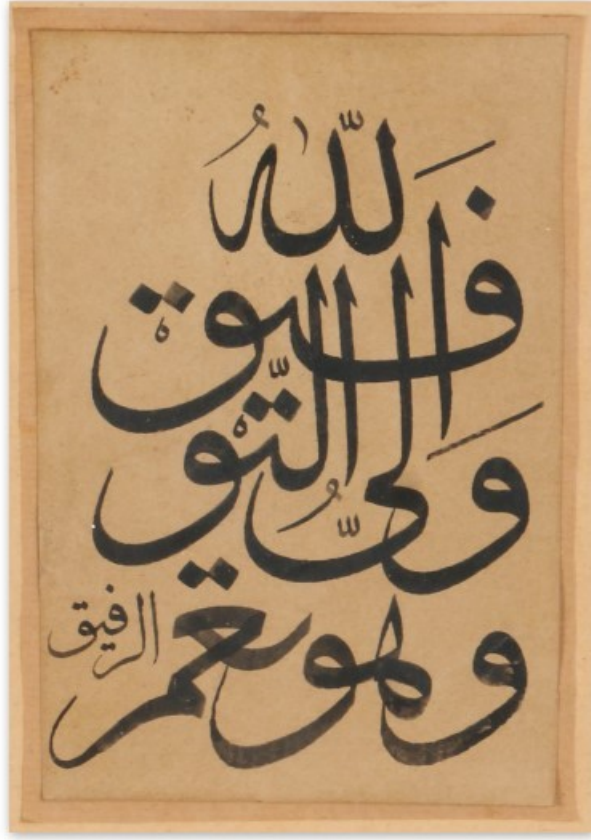 الله
ولىّ التّوفيق
وهو نعم الرفيق